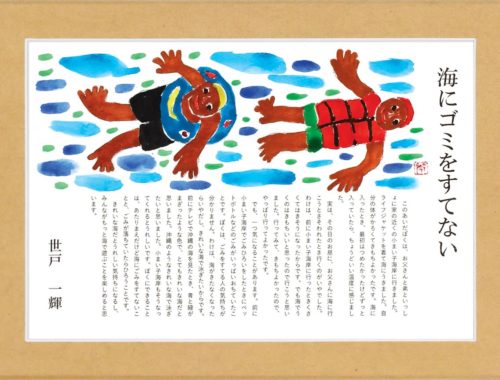 海にゴミをすてない
このあいだぼくは、お父さんと歳といっし
ょに家の近くの小本しい子海岸に行きました。
ライフジャケットを着て海にうきました。自
分の体がかるくてきもちよかったです。海に
入ったとき、最初はつめたかったけどずっと
入っていたら、ちょうどいい温度に感じまし
た。
実は、その日のお昼に、お父さんに海に行
こうとさそわれたときに行くのがいやでした。
わけは、前に小本しい子海岸に行ったときくさ
くてはきそうになったからです。でも海でう
くのはきもちいいと思ったので行こうと思い
ました。行ってみて、きもちよかったので、
やっぱり行ってよかったです。
でも、一つ気になることがあります。前に
トボトルなどのごみがいっぱいおちていたこ
とです。ぼくはごみをすてる人の気持ちが
分かりません。わけは、海がきたなくなった
らいやだし、きれいな海で泳ぎたいからです。
前にテレビで沖縄の海を見たとき、青と緑が
まざったような色で、とてもきれいな海だと
思いました。沖縄のようなきれいな海で泳ぎ
たいと思いました。
くれるとうれしいです。ぼくにできること
は、あたりまえだけど海にごみをすてないこ
と、ごみが落ちていたらひろうことです。
きれいな海だとうれしい気持ちになるし、
みんながもっと海で遊ぶことを楽しめると思
います。
世戸 一輝